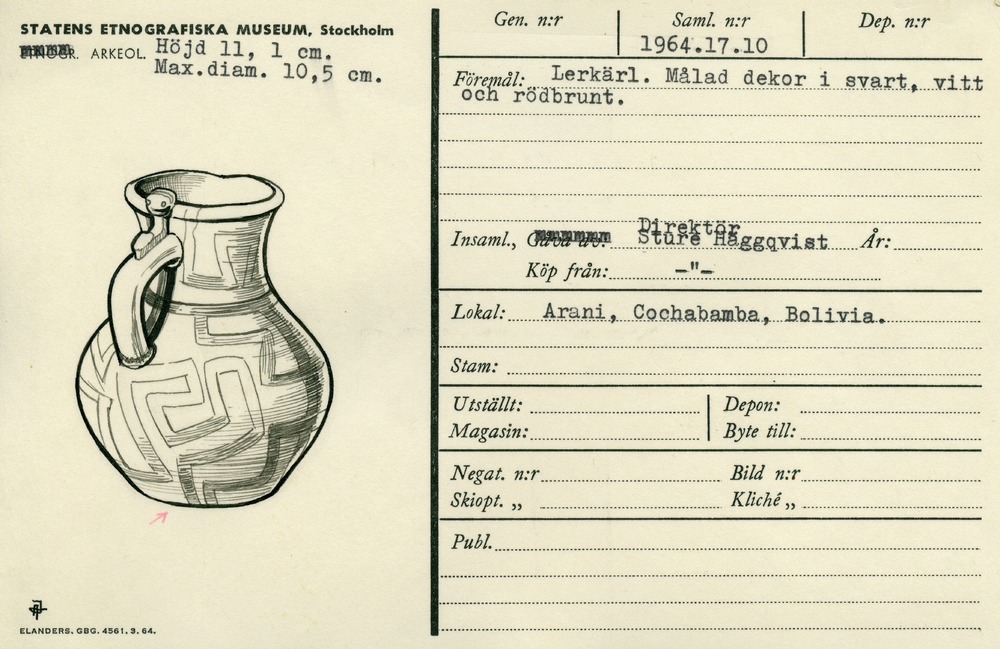 STATENS ETNOGRAFISKA MUSEUM, Stockholm
ETNOGR. ARKEOL. Höjd 11, 1 cm.
Max.diam. 10,5 cm.
ELANDERS. GBG. 4561. 3. 64.
Gen. n:r Saml. n:r Dep. n:r
1964.17.10
Föremål: Lerkärl. Målad dekor i svart, vitt
och rödbrunt.
Direktör
Insaml., Gåva av: Sture Häggqvist År:
Köp från: –"–
Lokal: Arani, Cochabamba, Bolivia.
Stam:
Utställt: Depon:
Magasin: Byte till:
Negat. n:r Bild n:r
Skiopt. „ Kliché „
Publ.